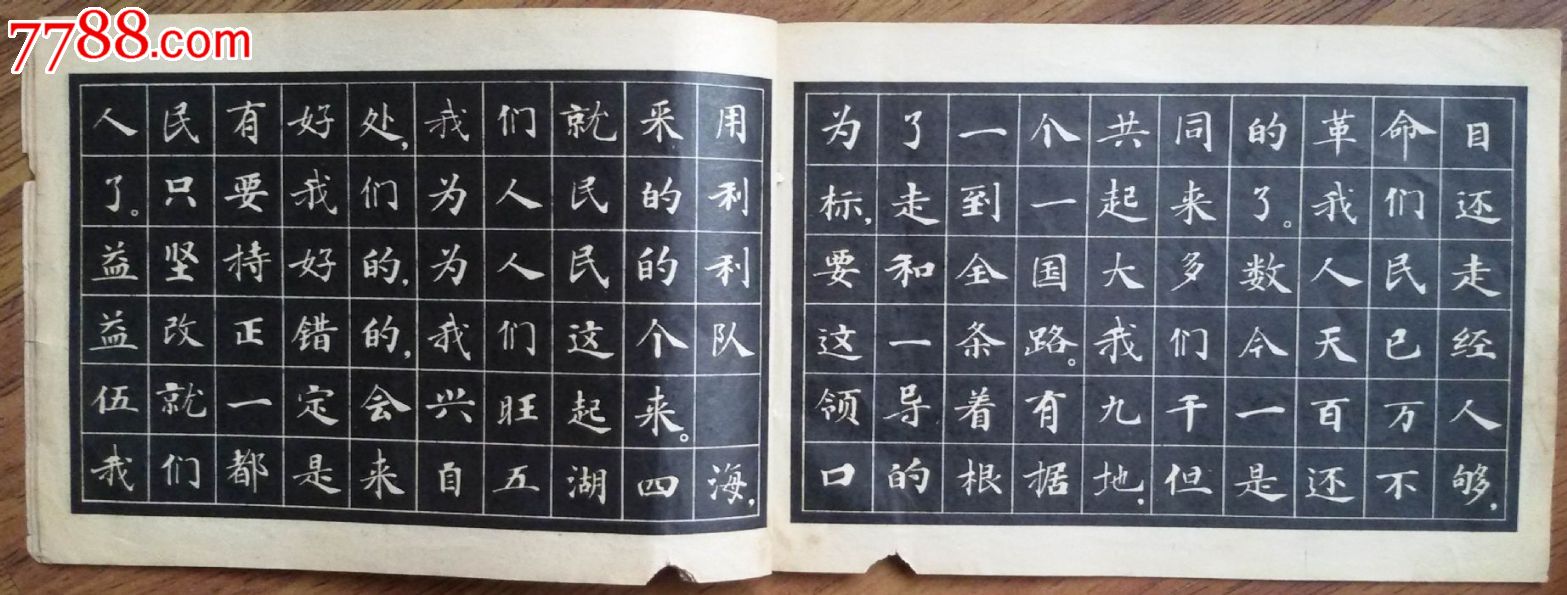 7788.com
人民有好处,我们就采用
了。只要我们为人民的利
益坚持好的,为人民的利
益改正错的,我们这个队
伍就一定会兴旺起来。
我们都是来自五湖四海,
为了一个共同的革命目
标,走到一起来了。我们还
要和全国大多数人民走
这一条路。我们今天已经
领导着有九千一百万人
口的根据地,但是还不够,